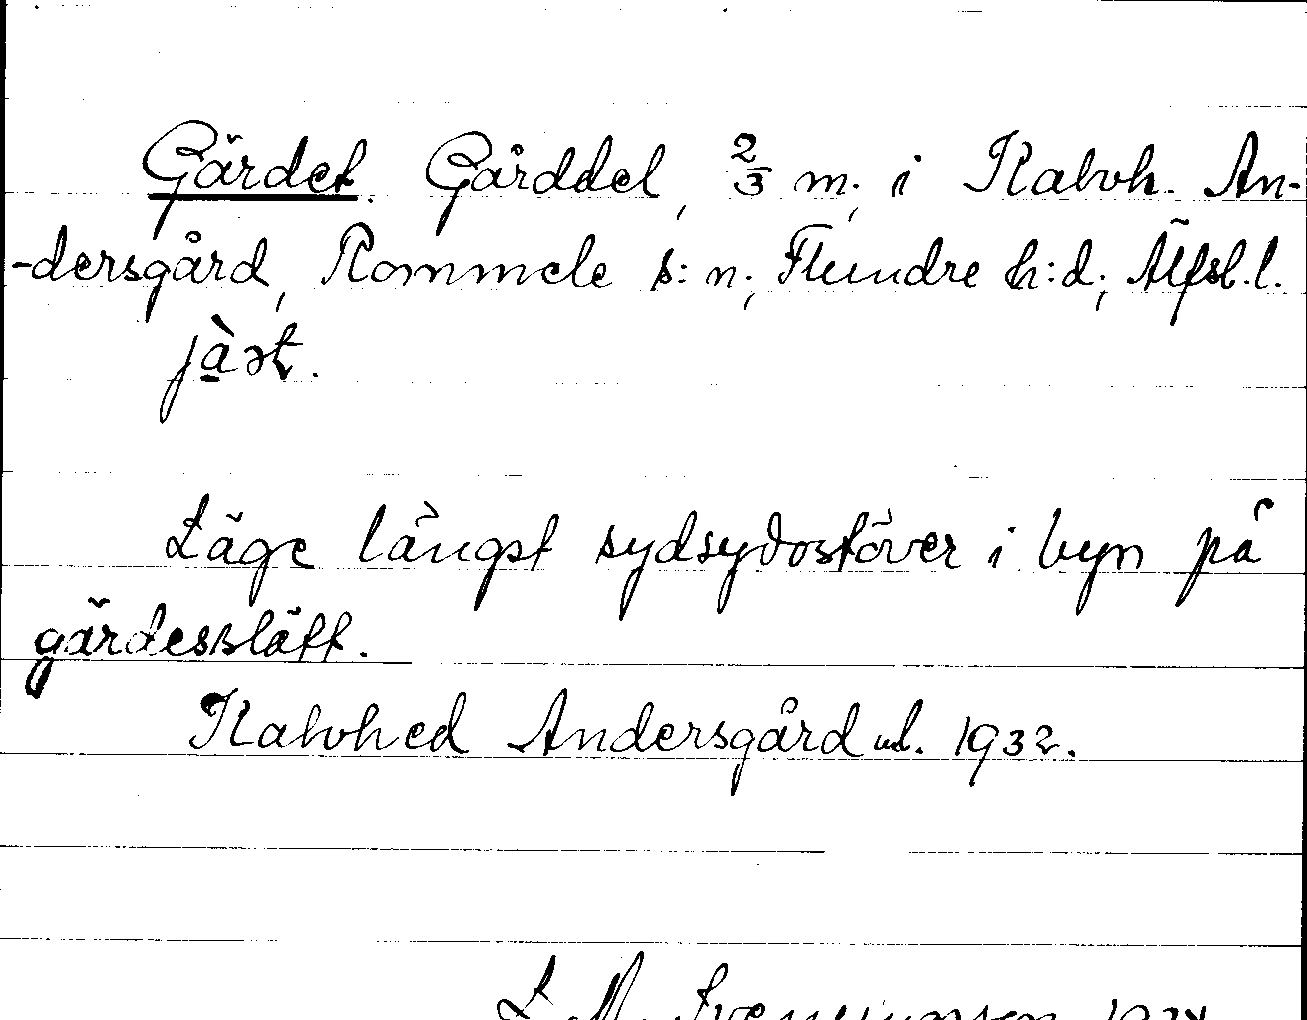 Gärdet. Gårddel, 2/3 m; i Kalvh. An-
-dersgård, Rommele s:n; Flundre h:d; Älfsb.l.
jàst.
Läge längst sydsydostöver i byn på
gärdesslätt.
Kalvhed Andersgård ul. 1932.